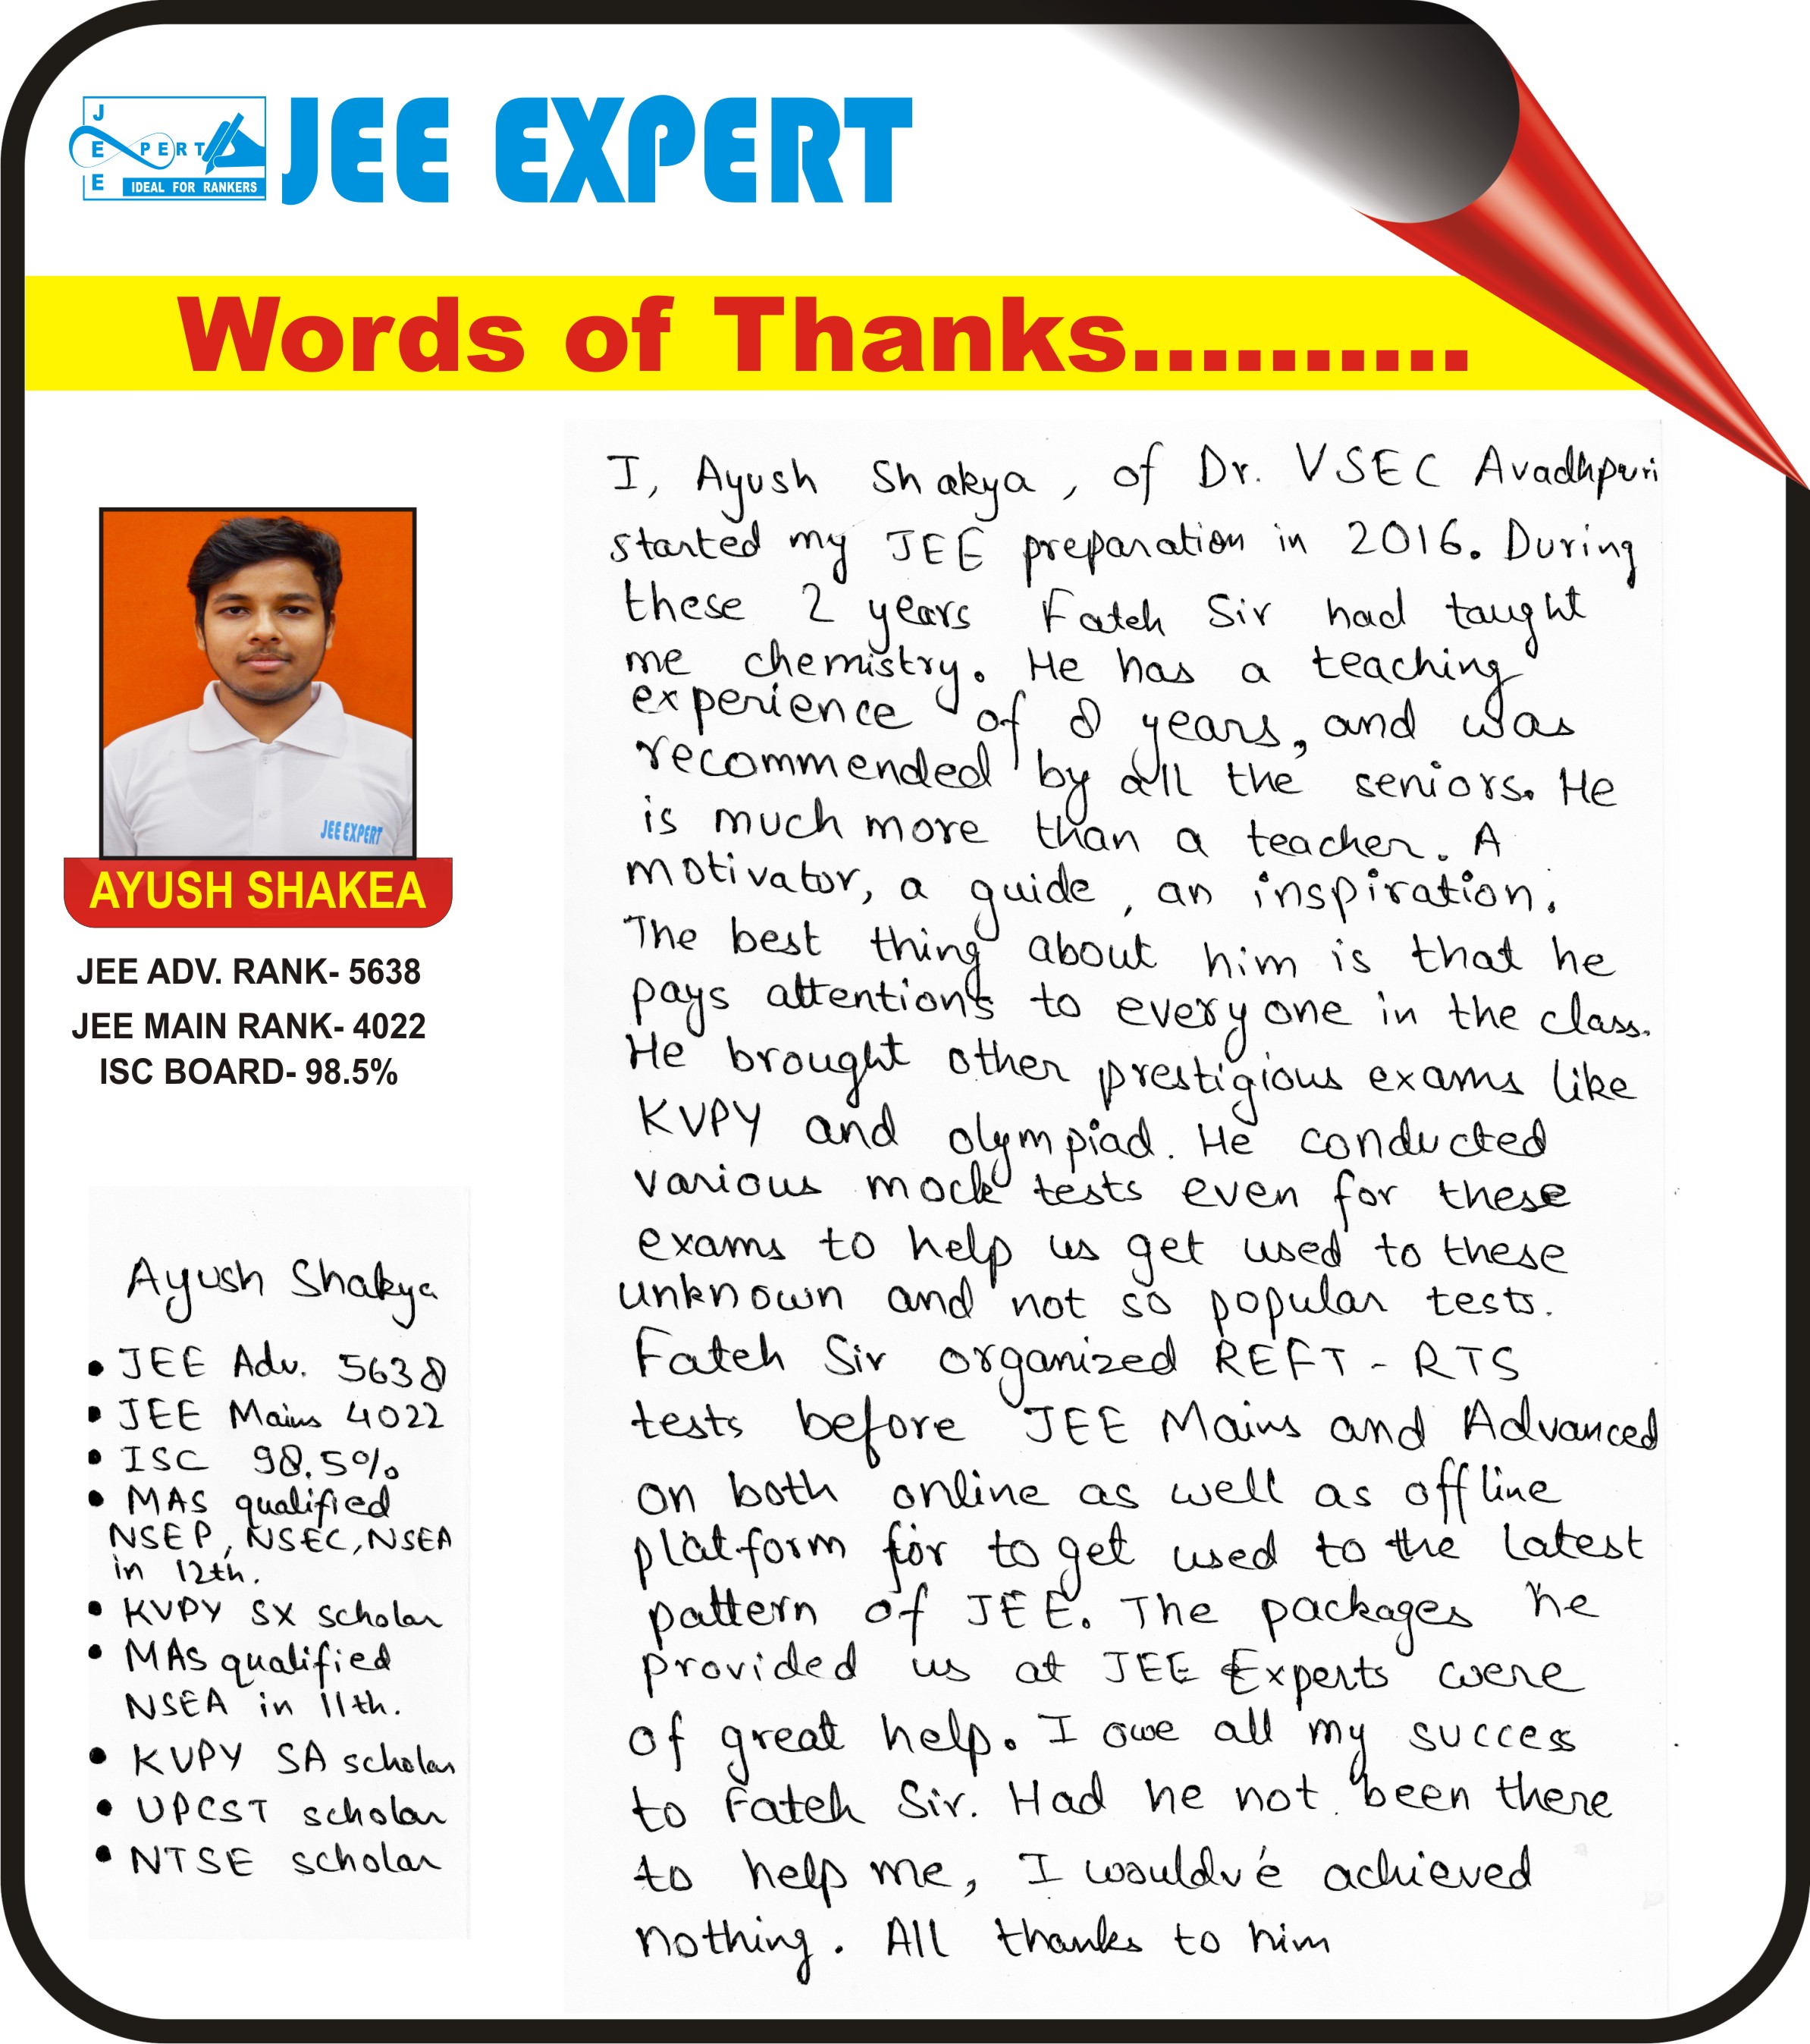 J
E XPERT
E
IDEAL FOR RANKERS
JEE EXPERT
Words of Thanks..........
JEE EXPERT
AYUSH SHAKEA
JEE ADV. RANK- 5638
JEE MAIN RANK- 4022
ISC BOARD- 98.5%
Ayush Shakya
• JEE Adv. 5638
• JEE Mains 4022
• ISC 98.5%
• MAS qualified
NSEP, NSEC, NSEA
in 12th.
• KVPY SX scholar
• MAS qualified
NSEA in 11th.
• KVPY SA scholar
• UPCST scholar
• NTSE scholar
I, Ayush Shakya, of Dr. VSEC Avadhpuri
started my JEE preparation in 2016. During
these 2 years Fateh Sir had taught
me chemistry. He has a teaching
experience of 8 years, and was
recommended by all the seniors. He
is much more than a teacher. A
motivator, a guide, an inspiration.
The best thing about him is that he
pays attentions to everyone in the class.
He brought other prestigious exams like
KVPY and olympiad. He conducted
various mock tests even for these
exams to help us get used to these
unknown and not so popular tests.
Fateh Sir organized REFT - RTS
tests before JEE Mains and Advanced
on both online as well as offline
platform for to get used to the latest
pattern of JEE. The packages he
provided us at JEE Experts were
of great help. I owe all my success
to Fateh Sir. Had he not been there
to help me, I wouldv'e achieved
nothing. All thanks to him